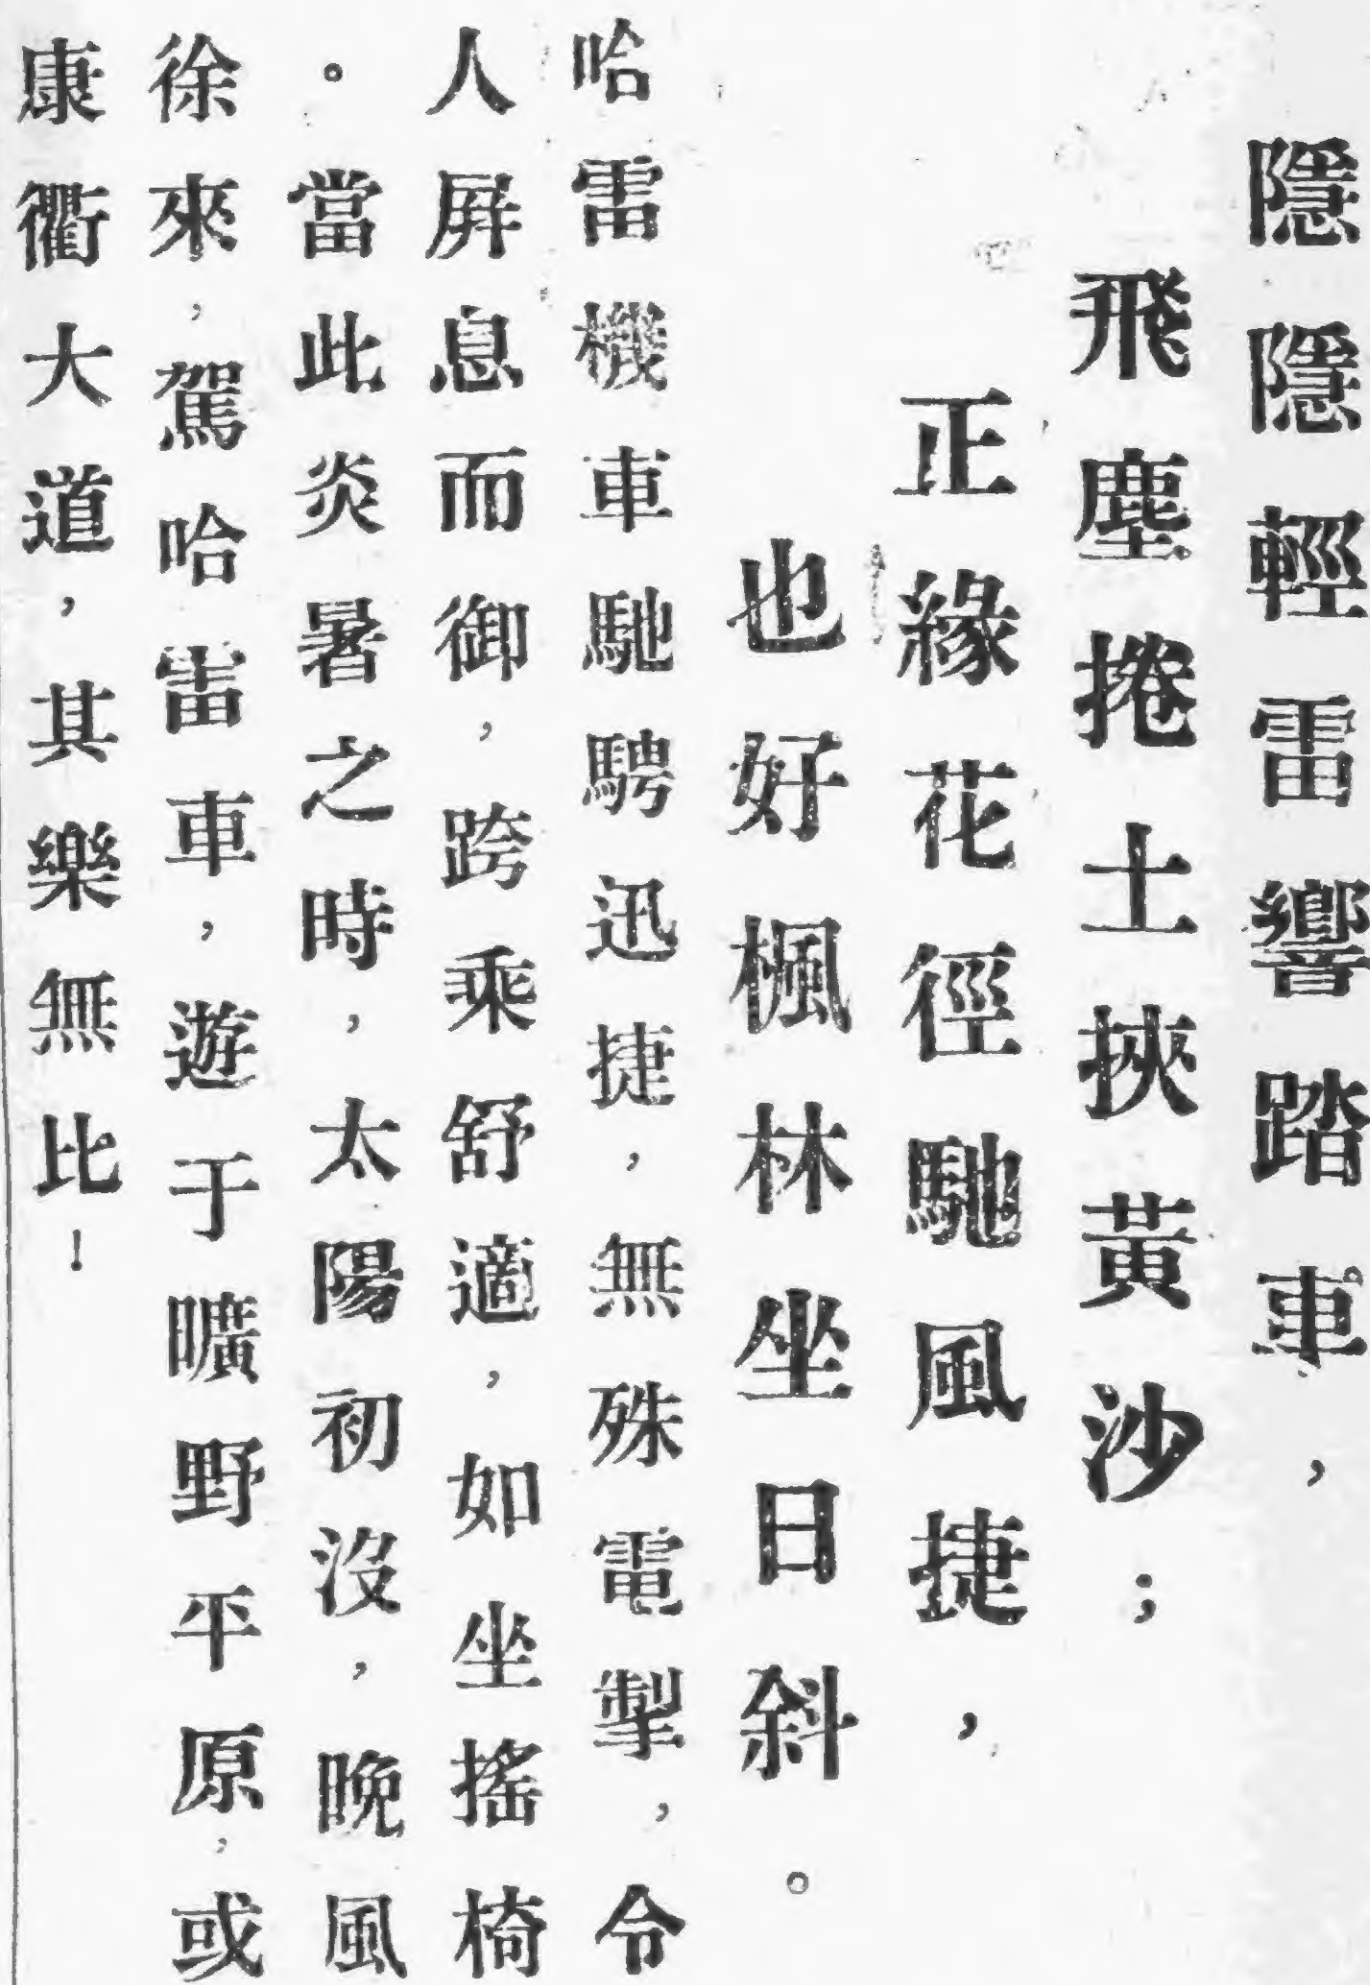 隱隱輕雷響踏車，
飛塵捲土挾黃沙；
正緣花徑馳風捷，
也好楓林坐日斜。
哈雷機車馳騁迅捷，無殊電掣，令
人屏息而御，跨乘舒適，如坐搖椅
。當此炎暑之時，太陽初沒，晚風
徐來，駕哈雷車，遊于曠野平原，或
康衢大道，其樂無比！